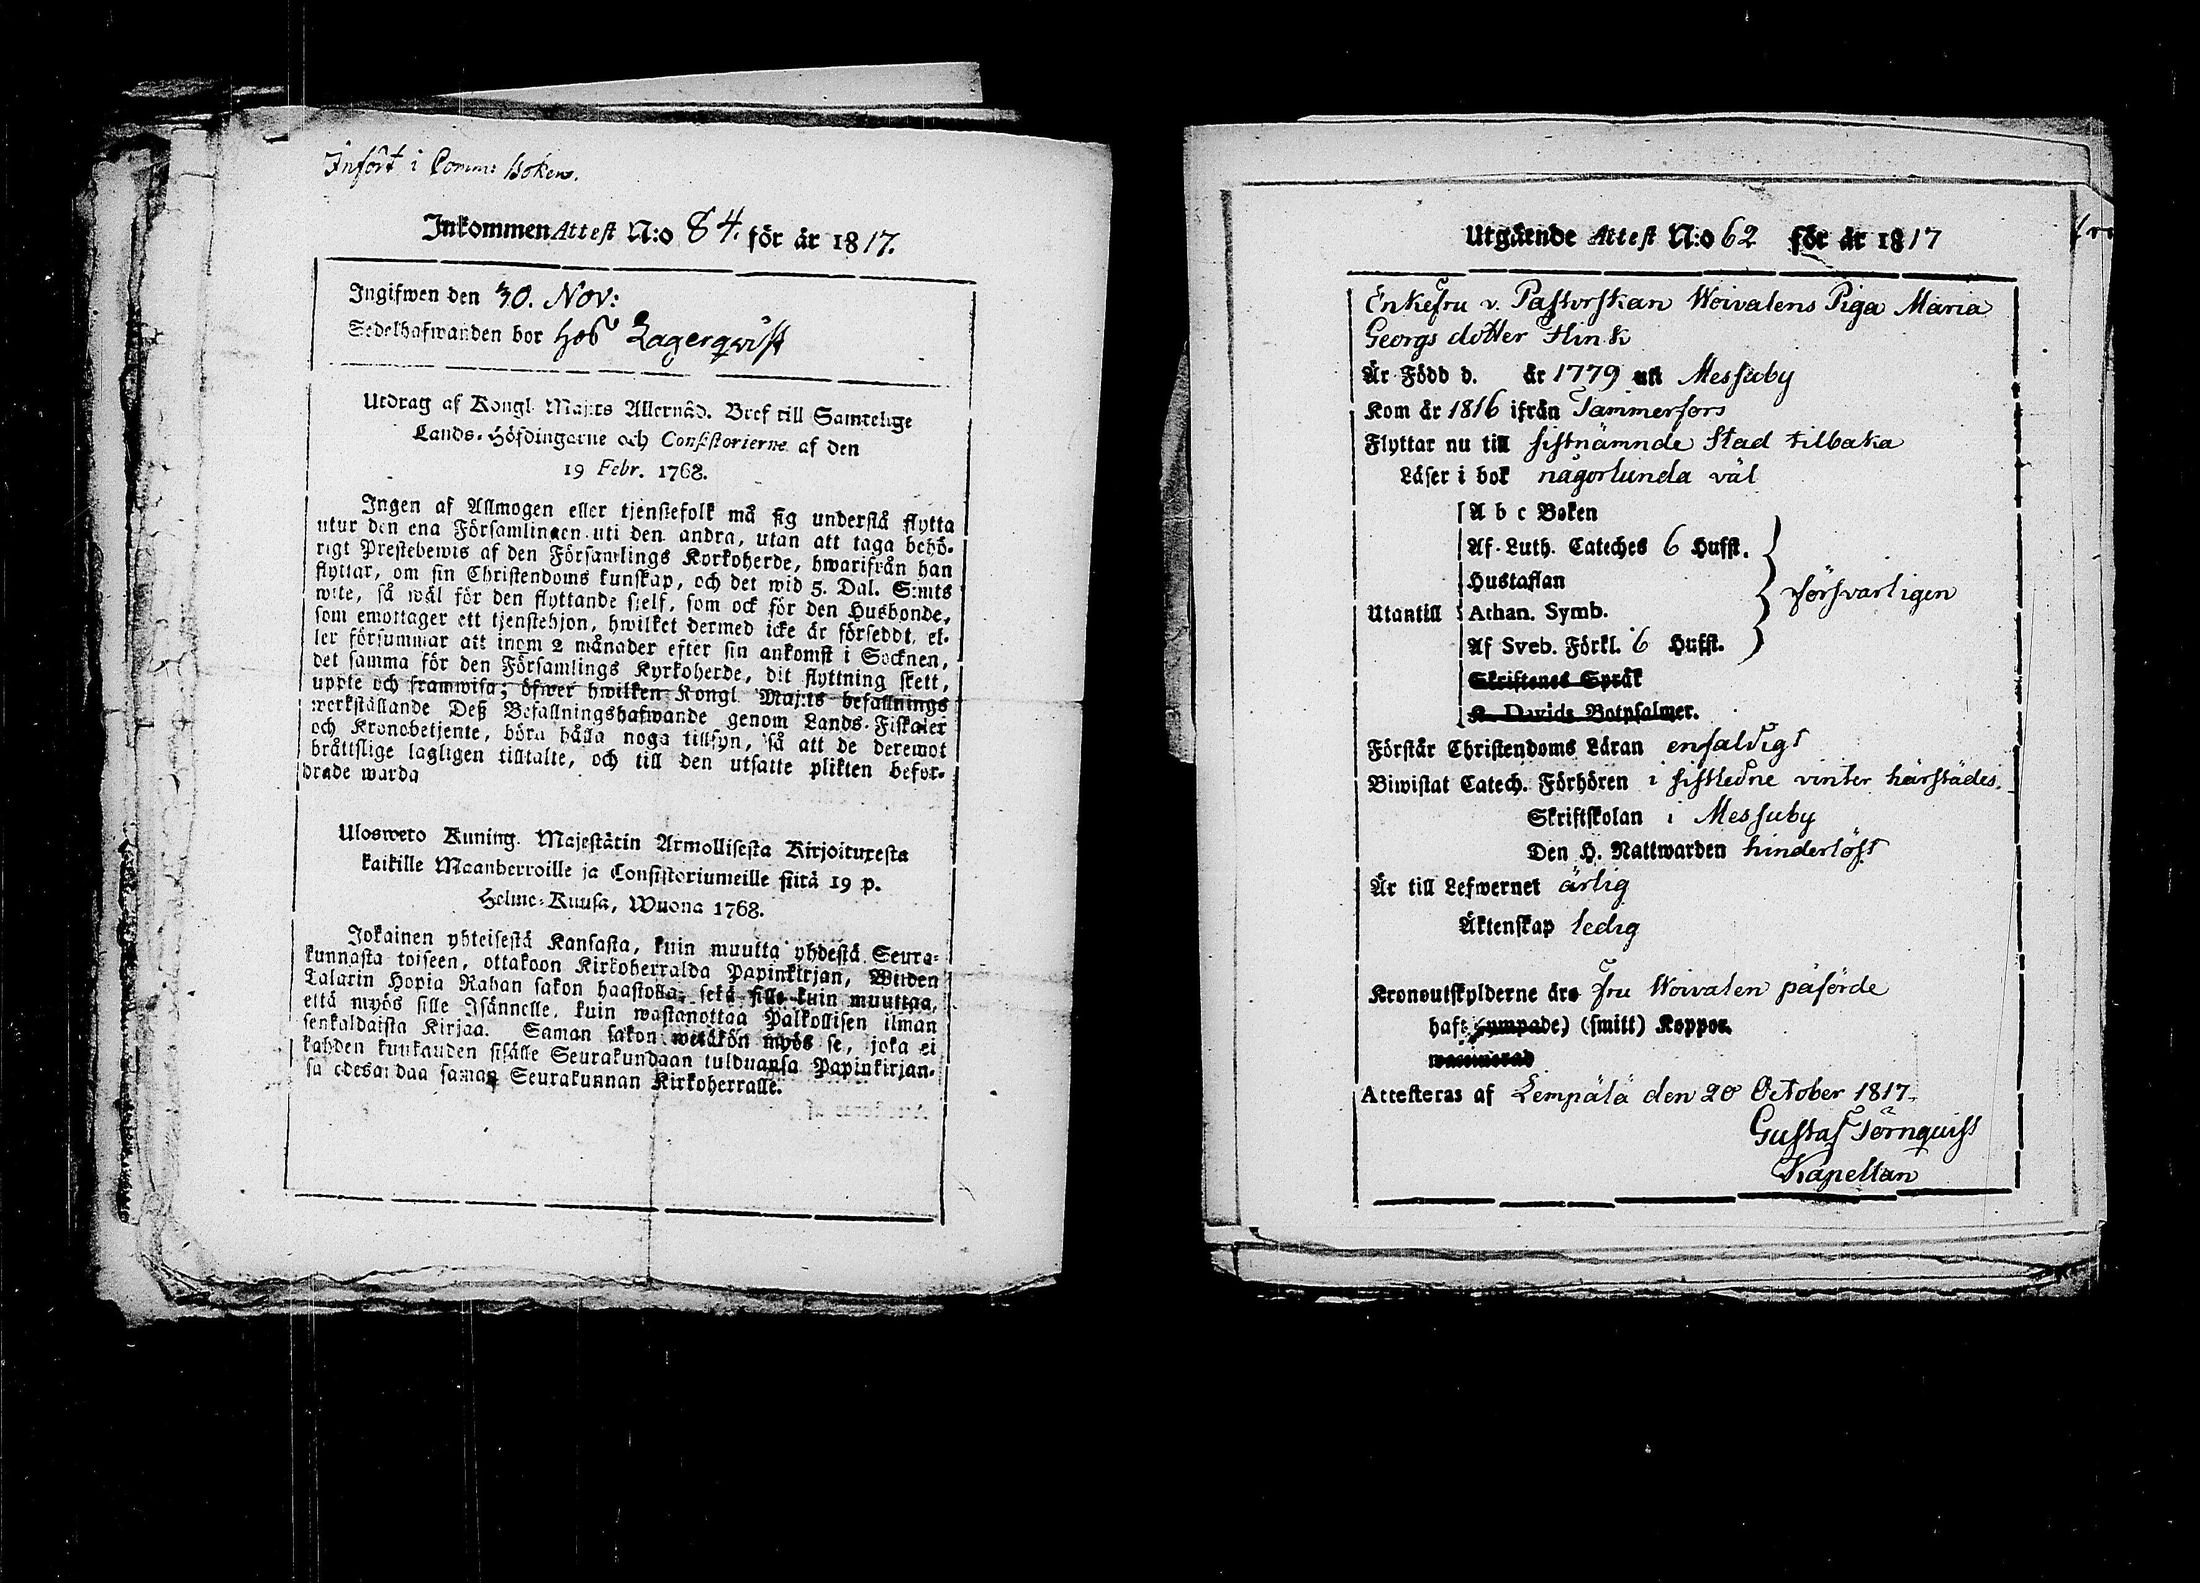 Infört i Comm: Boken.
Inkommen Attest N:o 84. för år 1817.
Ingifwen den 30. Nov:
Sedelhafwanden bor hos Lagerqvist
Utdrag af Kongl. Maj:ts Allernåd. Bref till Samtelige
Lands-Höfdingarne och Consistorierne af den
19 Febr. 1768.
Ingen af Allmogen eller tjenstefolk må sig understå flytta
utur den ena Församlingen uti den andra, utan att taga behö-
rigt Prestebewis af den Församlings Kyrkoherde, hwarifrån han
flyttar, om sin Christendoms kunskap, och det wid 5. Dal. S:mts
wite, så wäl för den flyttande sjelf, som ock för den Husbonde,
som emottager ett tjenstehjon, hwilket dermed icke är försedt, el-
ler försummar att inom 2 månader efter sin ankomst i Socknen,
det samma för den Församlings Kyrkoherde, dit flyttning skett,
uppte och framwisa; öfwer hwilken Kongl. Maj:ts befallnings
werkställande Deß Befallningshafwande genom Lands-Fiskaler
och Kronobetjente, böra hålla noga tillsyn, så att de deremot
bråttslige lagligen tilltalte, och till den utsatte plikten befor-
drade warda
Ulosweto Kuning. Majestätin Armollisesta Kirjoituxesta
kaikille Maanherroille ja Consistoriumeille siitä 19 p.
Helme-Kuusa, Wuona 1768.
Jokainen yhteisestä Kansasta, kuin muutta yhdestä Seura-
kunnasta toiseen, ottakoon Kirkoherralda Papinkirjan, Wiiden
Talarin Hopia Rahan sakon haastolla, sekä sille kuin muuttaa,
että myös sille Isännelle, kuin wastanottaa Palkollisen ilman
senkaldaista Kirjaa. Saman sakon wetäkön myös se, joka ei
kahden kuukauden sisälle Seurakundaan tulduansa Papinkirjan-
sa edesandaa saman Seurakunnan Kirkoherralle.
Utgående Attest N:o 62 för år 1817
Enkefru v. Pastorskan Woivalens Piga Maria
Georgs dotter Flink
Är Född d. år 1779 uti Messuby
Kom år 1816 ifrån Tammerfors
Flyttar nu till sistnämnde Stad tilbaka
Läser i bok någorlunda väl
A b c Boken
Af Luth. Cateches 6 Hufst.
Hustaflan
Utantill Athan. Symb. försvarligen
Af Sveb. Förkl. 6 Hufst.
Skriftenes Språk
K. Davids Botpsalmer.
Förstår Christendoms Läran enfaldigt
Biwistat Catech. Förhören i sistledne vinter härstädes.
Skriftskolan i Messuby
Den H. Nattwarden hinderlöst
Är till Lefwernet ärlig
Äktenskap ledig
Kronoutskylderne äro fru Woivalen påförde
haft (ympade) (smitt) Koppor.
waccinerad
Attesteras af Lempälä den 20 October 1817.
Gustaf Törnquist
Kapellan